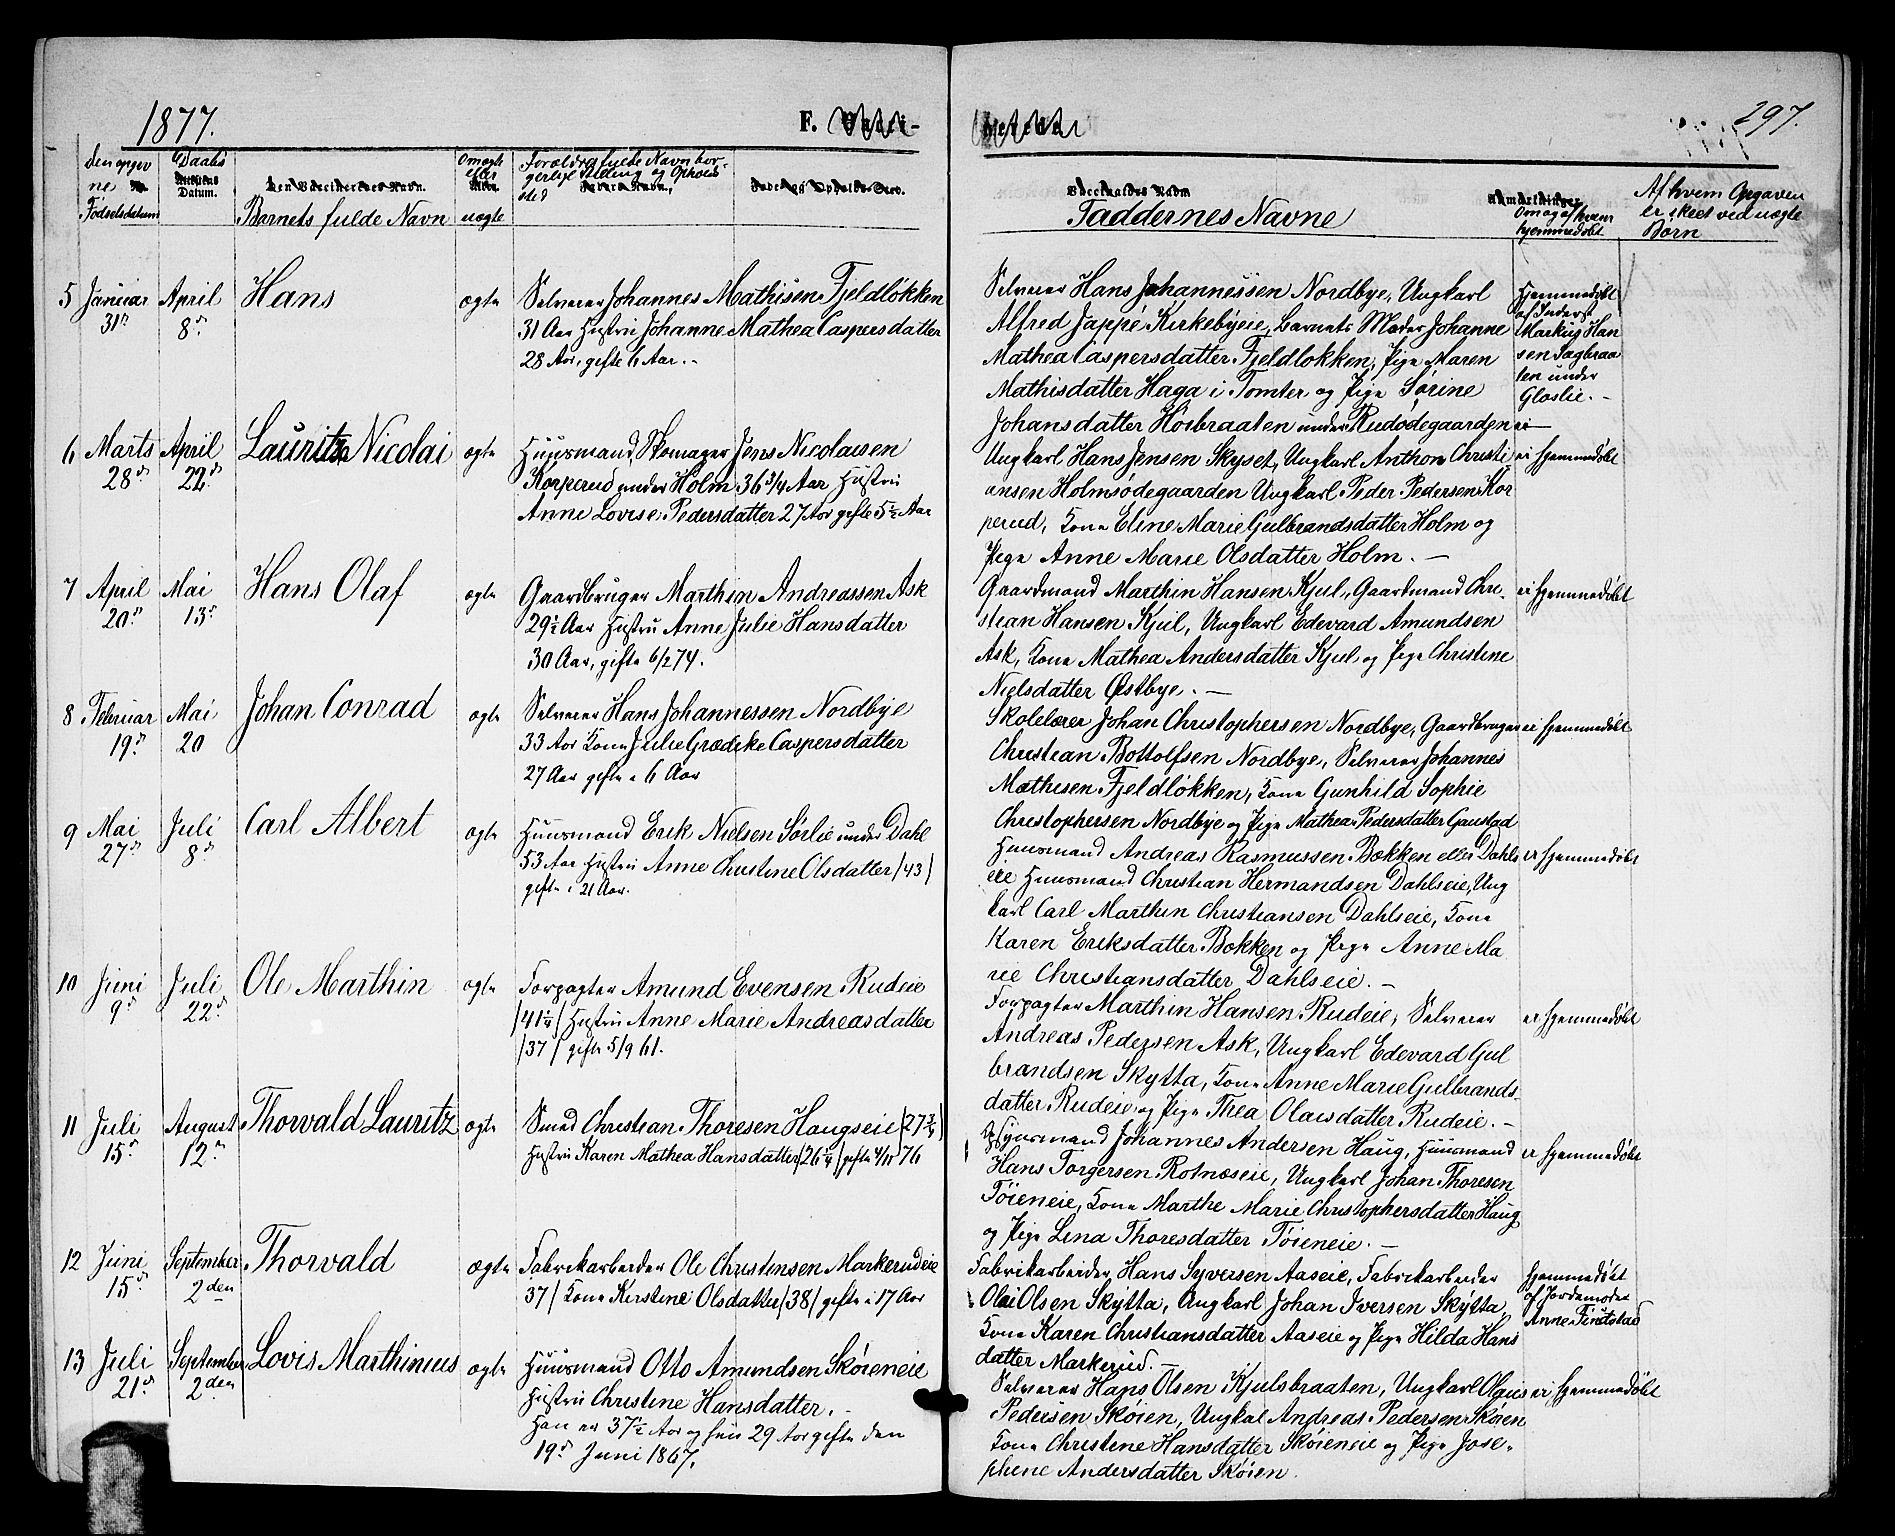 1877.
F.
297.
den opgivne Fødselsdatum
Daabs Datum.
Barnets fulde Navn
Om ægte eller uægte
Forældres fulde Navn borgerlige Stilling og Opholdssted
Faddernes Navne
Om og af hvem hjemmedøbt
Af hvem Opgaven er skeet ved uægte Børn
5 Januar 31te April 8de Hans ægte
Selveier Johannes Mathisen Fjeldløkken
31 Aar Hustru Johanne Mathea Caspersdatter
28 Aar, gifte 6 Aar. -
Selveier Hans Johannessen Nordbye, Ungkarl
Alfred Jappé Kirkebyeie, Barnets Moder Johanne
Mathea Caspersdatter Fjeldløkken, Pige Maren
Mathisdatter Haga i Tomter og Pige Sørine
Johansdatter Høsbraaten under Rudødegaarden
Hjemmedøbt
af Inderst
Markus Han
sen Sagbraa
ten under
Gloslie. -
6 Marts 28de April 22de Lauritz Nicolai ægte
Huusmand, Skomager Jens Nicolaisen
Korperud under Holm 36 3/4 Aar Hustru
Anne Lovise Pedersdatter 27 Aar gifte 5½ Aar
Ungkarl Hans Jensen Skyset, Ungkarl Anthon Christi
ansen Holmsødegaarden Ungkarl Peder Pedersen Kor
perud, Kone Eline Marie Gulbrandsdatter Holm og
Pige Anne Marie Olsdatter Holm. -
ei hjemmedøbt
7 April 20de Mai 13de Hans Olaf ægte
Gaardbruger Marthin Andreassen Ask
29½ Aar Hustru Anne Julie Hansdatter
30 Aar, gifte 6/2 74.
Gaardmand Marthin Hansen Kjul, Gaardmand Chri-
stian Hansen Kjul, Ungkarl Edevard Amundsen
Ask, Kone Mathea Andersdatter Kjul og Pige Christine
Nielsdatter Østbye. -
ei hjemmedøbt
8 Februar 19de Mai 20 Johan Conrad ægte
Selveier Hans Johannessen Nordbye
33 Aar Kone Julie Grædske Caspersdatter
27 Aar gifte i 6 Aar
Skolelærer Johan Christophersen Nordbye, Gaardbruger
Christian Bottolfsen Nordbye, Selveier Johannes
Mathisen Fjeldløkken, Kone Gunhild Sophie
Christophersen Nordbye og Pige Mathea Pedersdatter Gaustad
ei hjemmedøbt
9 Mai 27de Juli 8de Carl Albert ægte
Huusmand Erik Nielsen Sørlie under Dahl
53 Aar Hustru Anne Christine Olsdatter /43/
gifte i 21 Aar.
Huusmand Andreas Rasmussen Bækken eller Dahls
eie Huusmand Christian Hermandsen Dahlseie, Ung
karl Carl Marthin Christiansen Dahlseie, Kone
Karen Eriksdatter Bækken og Pige Anne Ma
rie Christiansdatter Dahlseie. -
er hjemmedøbt
10 Juni 9de Juli 22de Ole Marthin ægte
Forpagter Amund Evensen Rudeie
/41¼/ Hustru Anne Marie Andreasdatter
/37/ gifte 5/9 61.
Forpagter Marthin Hansen Rudeie, Selveier
Andreas Pedersen Ask, Ungkarl Edevard Gul
brandsen Skytta, Kone Anne Marie Gulbrands-
datter Rudeie og Pige Thea Olaisdatter Rudeie. -
er hjemmedøbt
11 Juli 15de August 12te Thorvald Lauritz ægte
Smed Christian Thoresen Haugseie /27¾/
Hustru Karen Mathea Hansdatter /26¼/ gifte 4/11 76
Huusmand Johannes Andersen Haug, Huusmand
Hans Torgersen Rotnæseie, Ungkarl Johan Thoresen
Tøieneie, Kone Marthe Marie Christophersdatter Haug
og Pige Lina Thoresdatter Tøieneie. -
er hjemmedøbt
12 Juni 15de September 2den Thorvald ægte
Fabrikarbeider Ole Christensen Markerudeie
37/ Kone Kirstine Olsdatter /38/ gifte i 17 Aar
Fabrikarbeider Hans Syversen Aaseie, Fabrikarbeider
Olai Olsen Skytta, Ungkarl Johan Iversen Skytta,
Kone Karen Christiansdatter Aaseie og Pige Hilda Hans
datter Markerud. -
hjemmedøbt
af Jordemoder
Anne Finstad
13 Juli 21de September 2den Lovis Marthinius ægte
Huusmand Otto Amundsen Skøieneie
Hustru Christine Hansdatter. -
Han er 37½ Aar og hun 29 Aar gifte den
19de Juni 1867.
Selveier Hans Olsen Kjulsbraaten, Ungkarl Olaus
Pedersen Skøien, Ungkal Andreas Pedersen Skøien
Kone Christene Hansdatter Skøieneie og Pige Jose-
phine Andersdatter Skøien.
ei hjemmedøbt